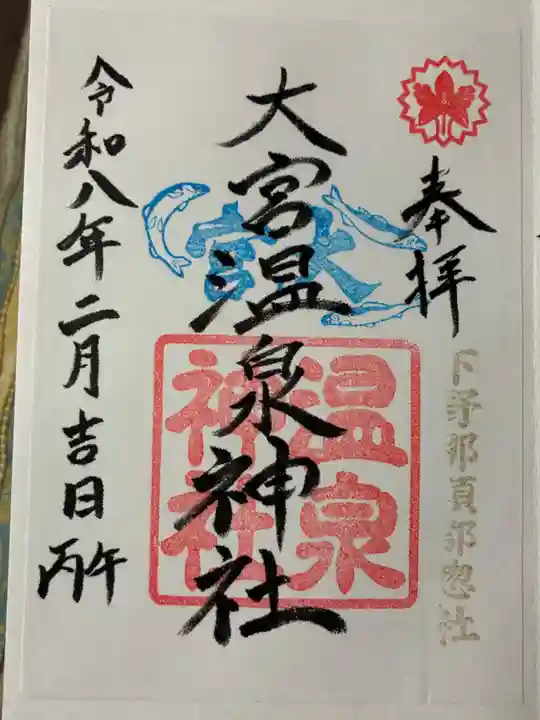 奉拝
下野那須郡惣社
大宮温泉神社
大宮
温泉
神社
令和八年二月吉日
丙午